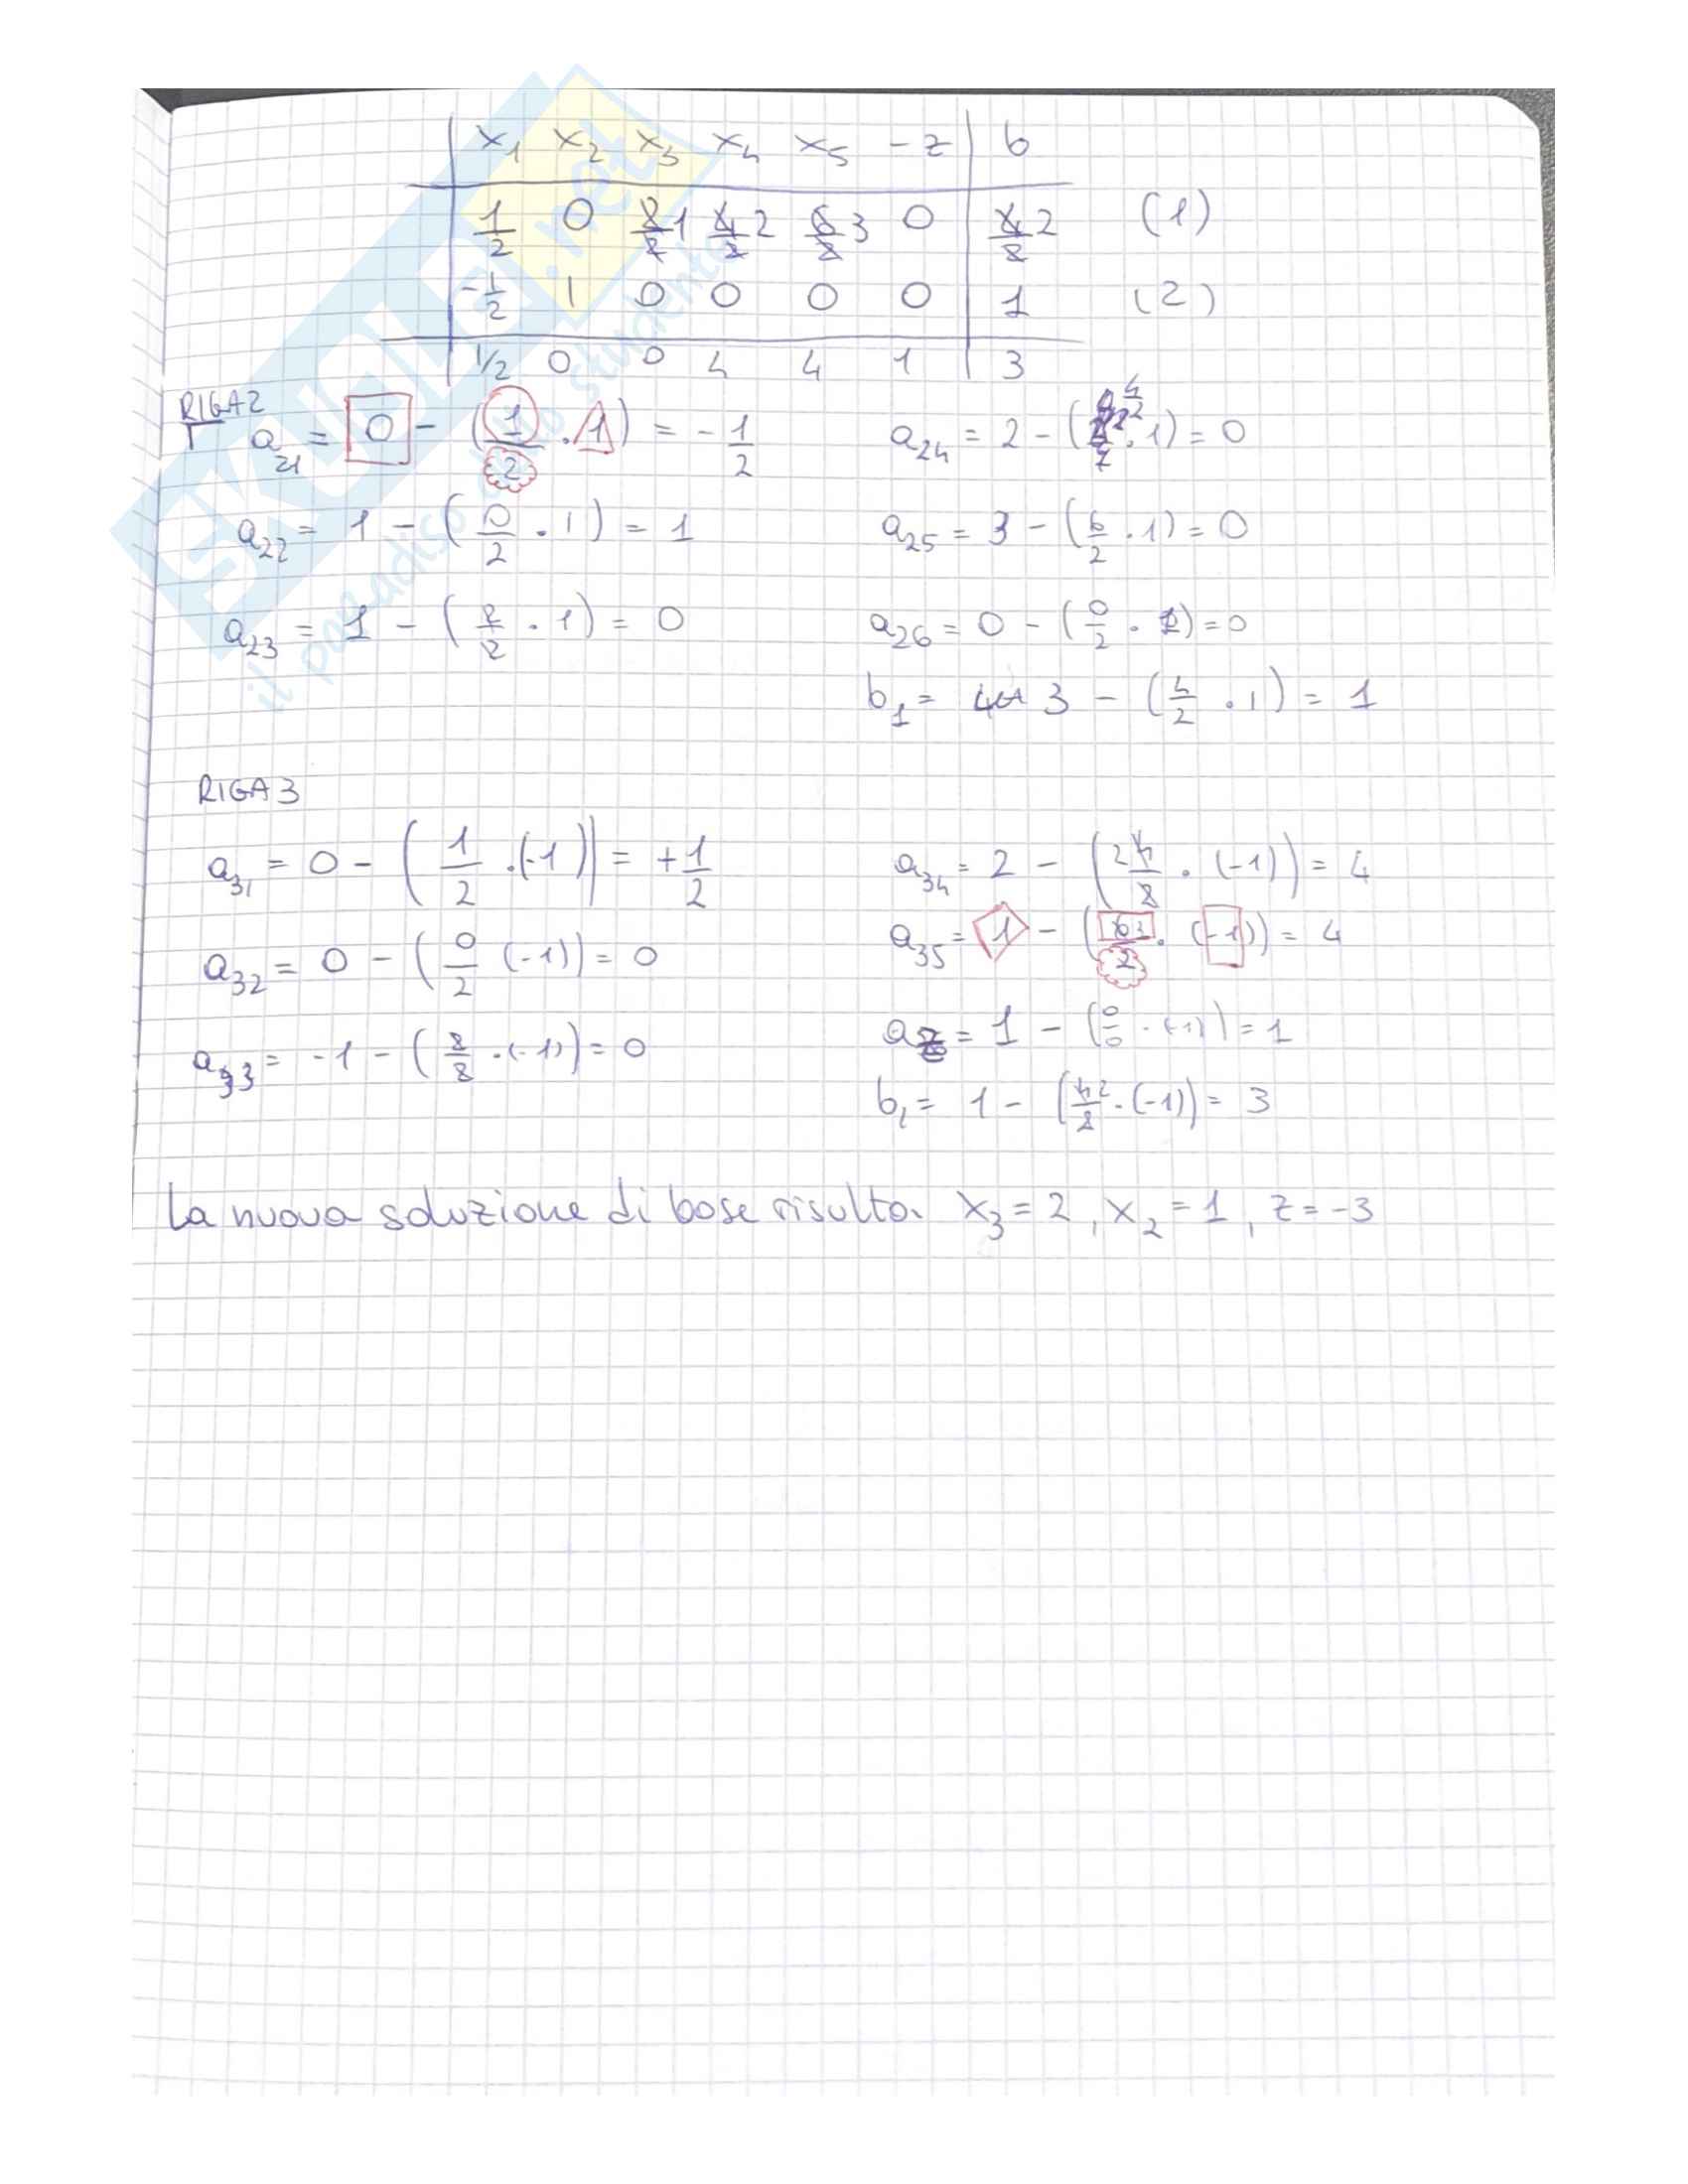 x₁ x₂ x₃ x₄ x₅ -z b
1/2 0 2/2 1 4/2 2 6/2 3 0 4/2 2 (1)
-1/2 1 0 0 0 0 1 (2)
1/2 0 0 4 4 1 3
RIGA 2
a₂₁ = 0 - (1/2 · 1) = -1/2
a₂₂ = 1 - (0/2 · 1) = 1
a₂₃ = 1 - (2/2 · 1) = 0
a₂₄ = 2 - (4/2 · 1) = 0
a₂₅ = 3 - (6/2 · 1) = 0
a₂₆ = 0 - (0/2 · 1) = 0
b₁ = 3 - (4/2 · 1) = 1
RIGA 3
a₃₁ = 0 - (1/2 · (-1)) = +1/2
a₃₂ = 0 - (0/2 (-1)) = 0
a₃₃ = -1 - (2/2 · (-1)) = 0
a₃₄ = 2 - (4/2 2 · (-1)) = 4
a₃₅ = 1 - (6/2 3 · (-1)) = 4
= 1 - (0/0 · (-1)) = 1
b₁ = 1 - (4/2 2 · (-1)) = 3
La nuova soluzione di base risulta x₃ = 2, x₂ = 1, z = -3
SKUOLA.net
il paradiso dello studente